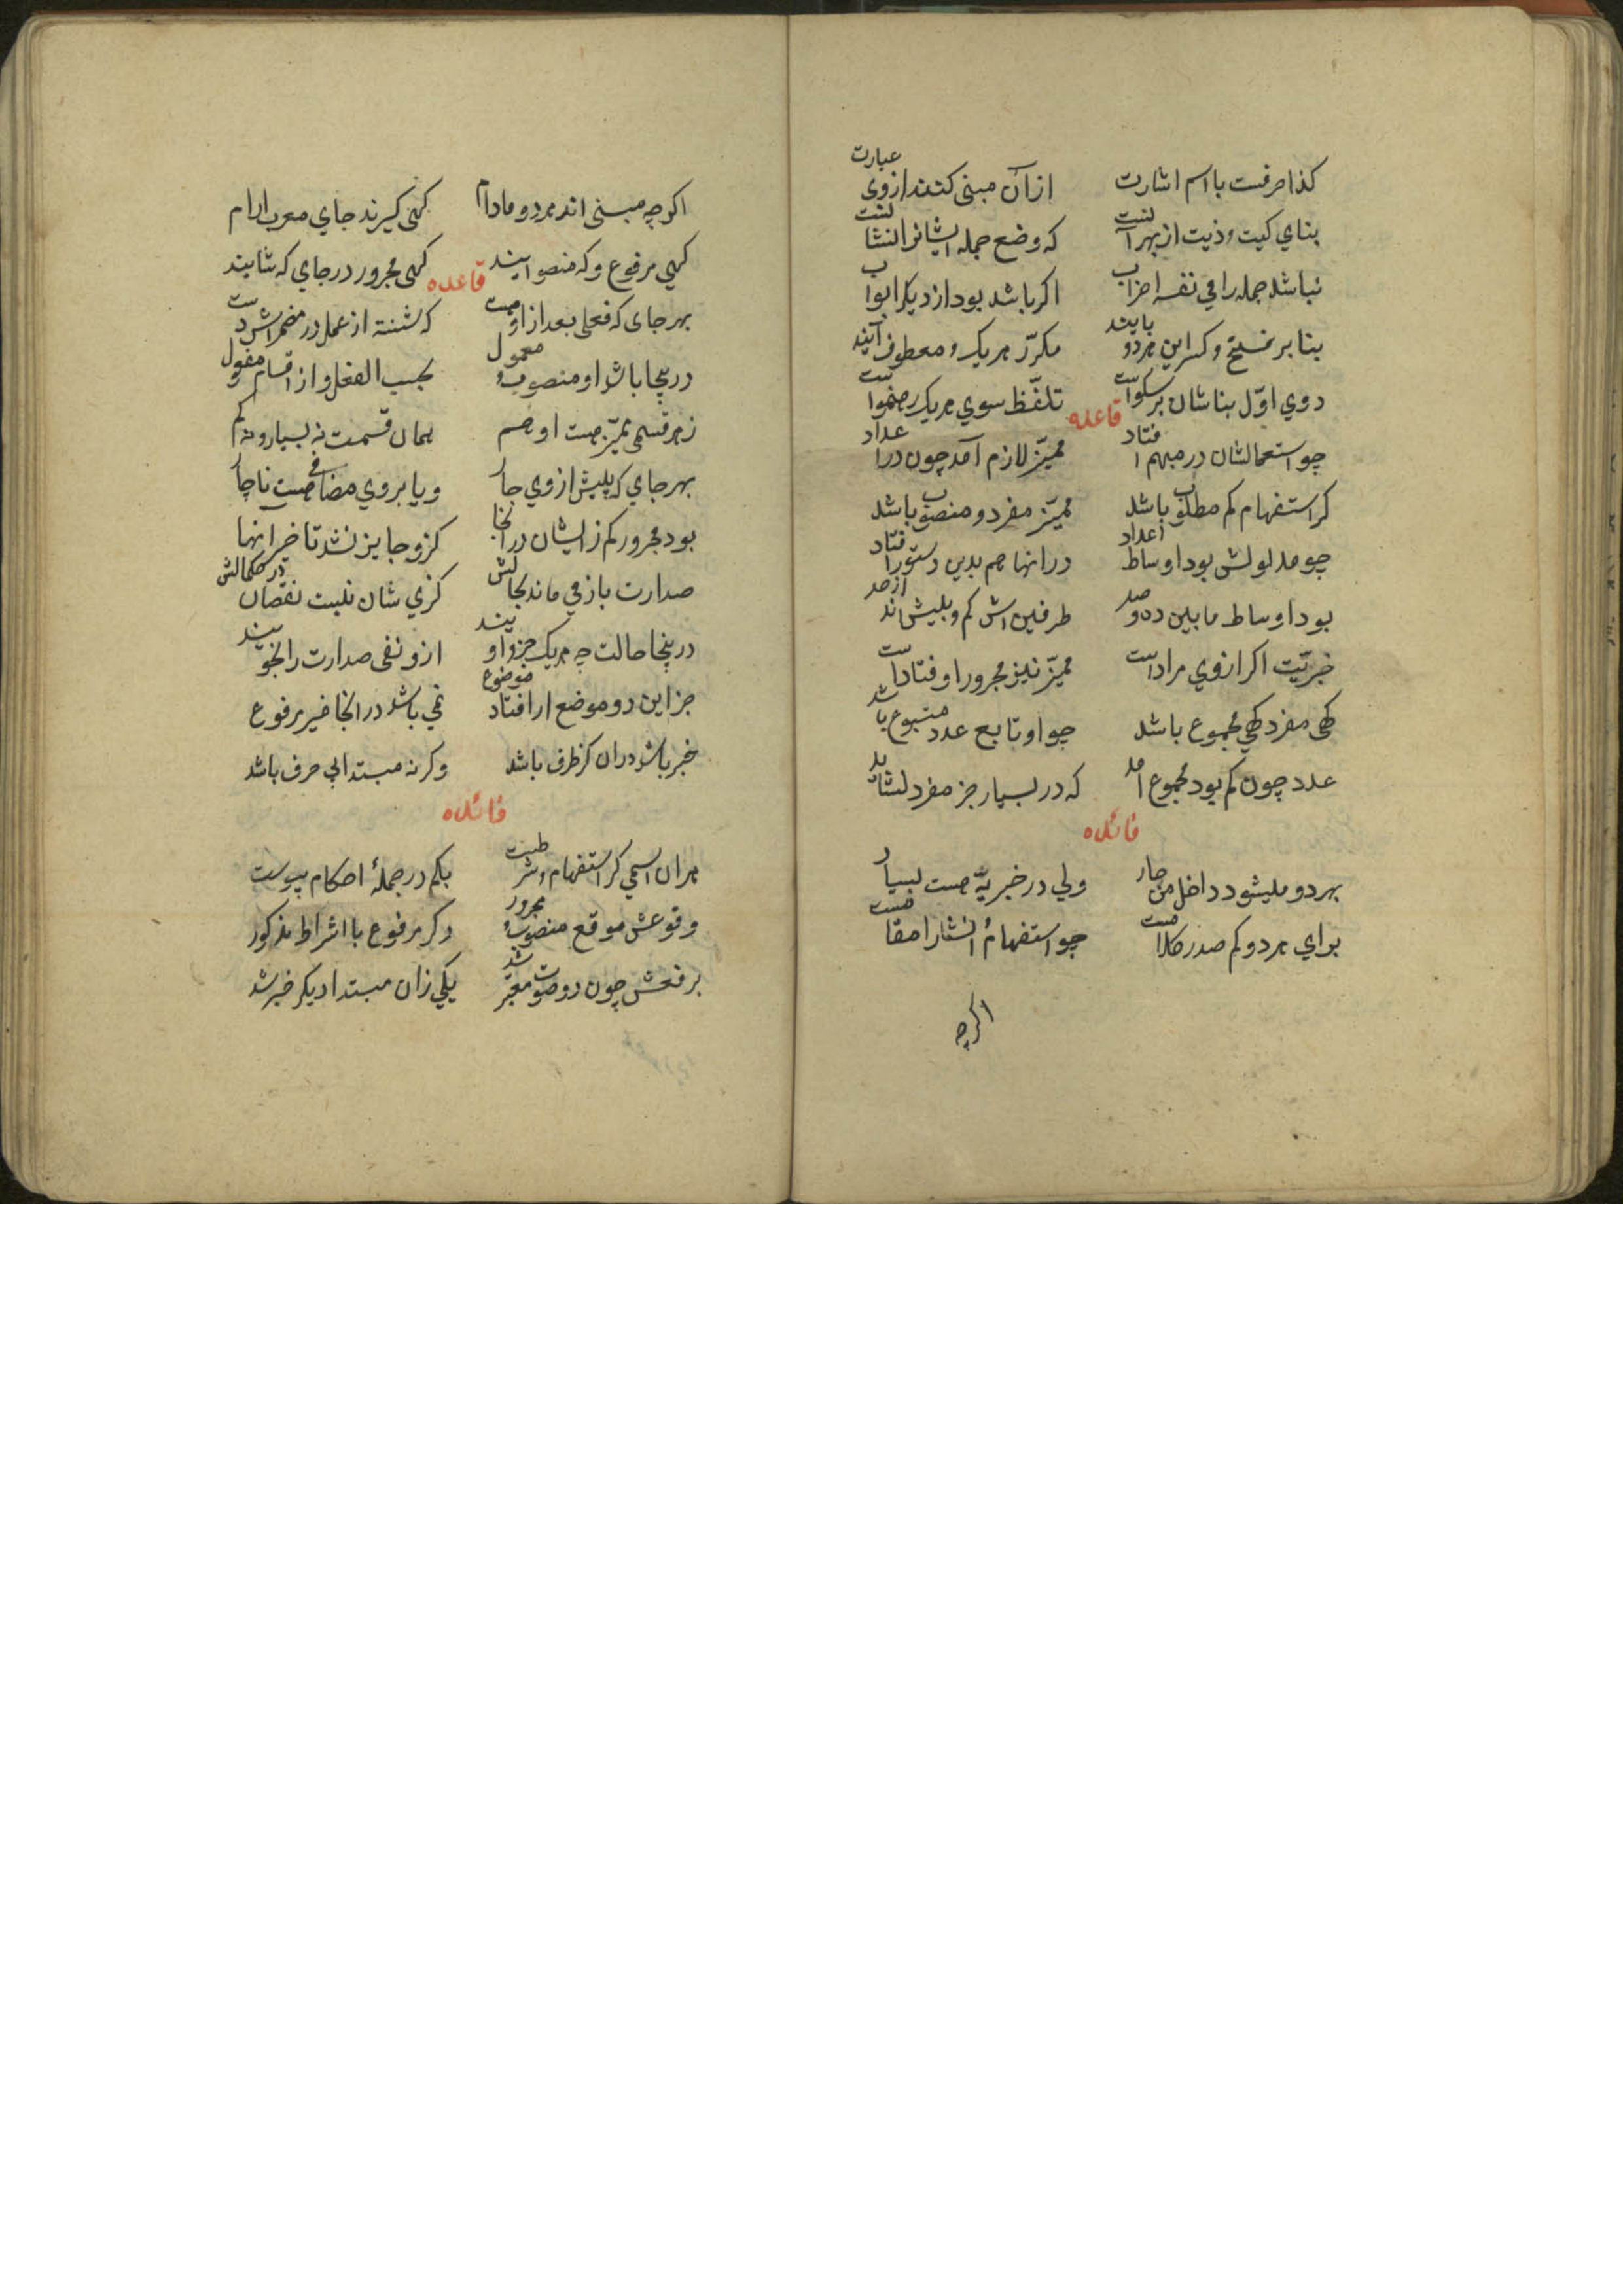 کذا حرفست با اسم اشارت ازان مبنی کنند از وی عبارت
بنای کیت و ذیت از بهر آنست که وضع جمله ایشانرا نشانست
نباشد جمله را فی نفسه اعراب اگر باشد بود از دیگر ابواب
بنا بر فتح و کسر این هردو بایند مکرّر هریک و معطوف آیند
دوی اوّل بناشان بر سکونست تلفّظ سوی هریک رهنمونست
قاعده
چو استعمالشان در مبهم افتاد ممیّز لازم آمد چون در اعداد
کر استفهام کم مطلوب باشد ممیّز مفرد و منصوب باشد
چو مدلولش بود اوساط اعداد در انها هم بدین دستور افتاد
بود اوساط مابین ده و صد طرفین اش کم و بیش اند از حد
خبریّت اکر از وی مراد است ممیّز نیز مجرور اوفتاد است
کهی مفرد کهی مجموع باشد چو او تابع عدد متبوع باشد
عدد چون کم بود مجموع آمد که در بسیار جز مفرد نشاید
فائده
بهردو میشود داخل من جار ولی در خبریّه هست بسیار
برای هردو کم صدر کلامست چو استفهام انشا را مقامست
اکرچه
اکرچه مبنی اند هردو مادام کهی کیرند جای معرب ارام
کهی مرفوع و که منصوب ایند کهی مجرور در جای که شایند
قاعده
بهر جای که فعلی بعد از او هست که شنته از عمل در مضمرش دست
درینجا باشد او منصوب و معمول بحسب الفعل و از اقسام مفعول
ز هر قسمی ممیّز هست او هم همان قسمت نه بسیار و نه کم
بهر جای که پیش از وی جار و یا بر وی مضافی هست ناچار
بود مجرور کم زایشان در انجا کزو جایز نشد تاخیر انها
صدارت باز می ماند بحالش کزی شان نیست نقصان در کمالش
درینجا حالت چه هریک جزو اویند ازو نفی صدارت را نجویند
جز این دو موضع ار افتاد موضوع نمی باشد در انجا غیر مرفوع
خبر باشد دران کز ظرف باشد وکرنه مبتدا بی حرف باشد
فائده
هران اسمی کر استفهام و شرطیت بکم در جملهٔ احکام پیوست
وقوعش موقع منصوب و مجرور وکر مرفوع با اشراط مذکور
برفعش چون دو صورت معتبر شد یکی زان مبتدا دیکر خبر شد